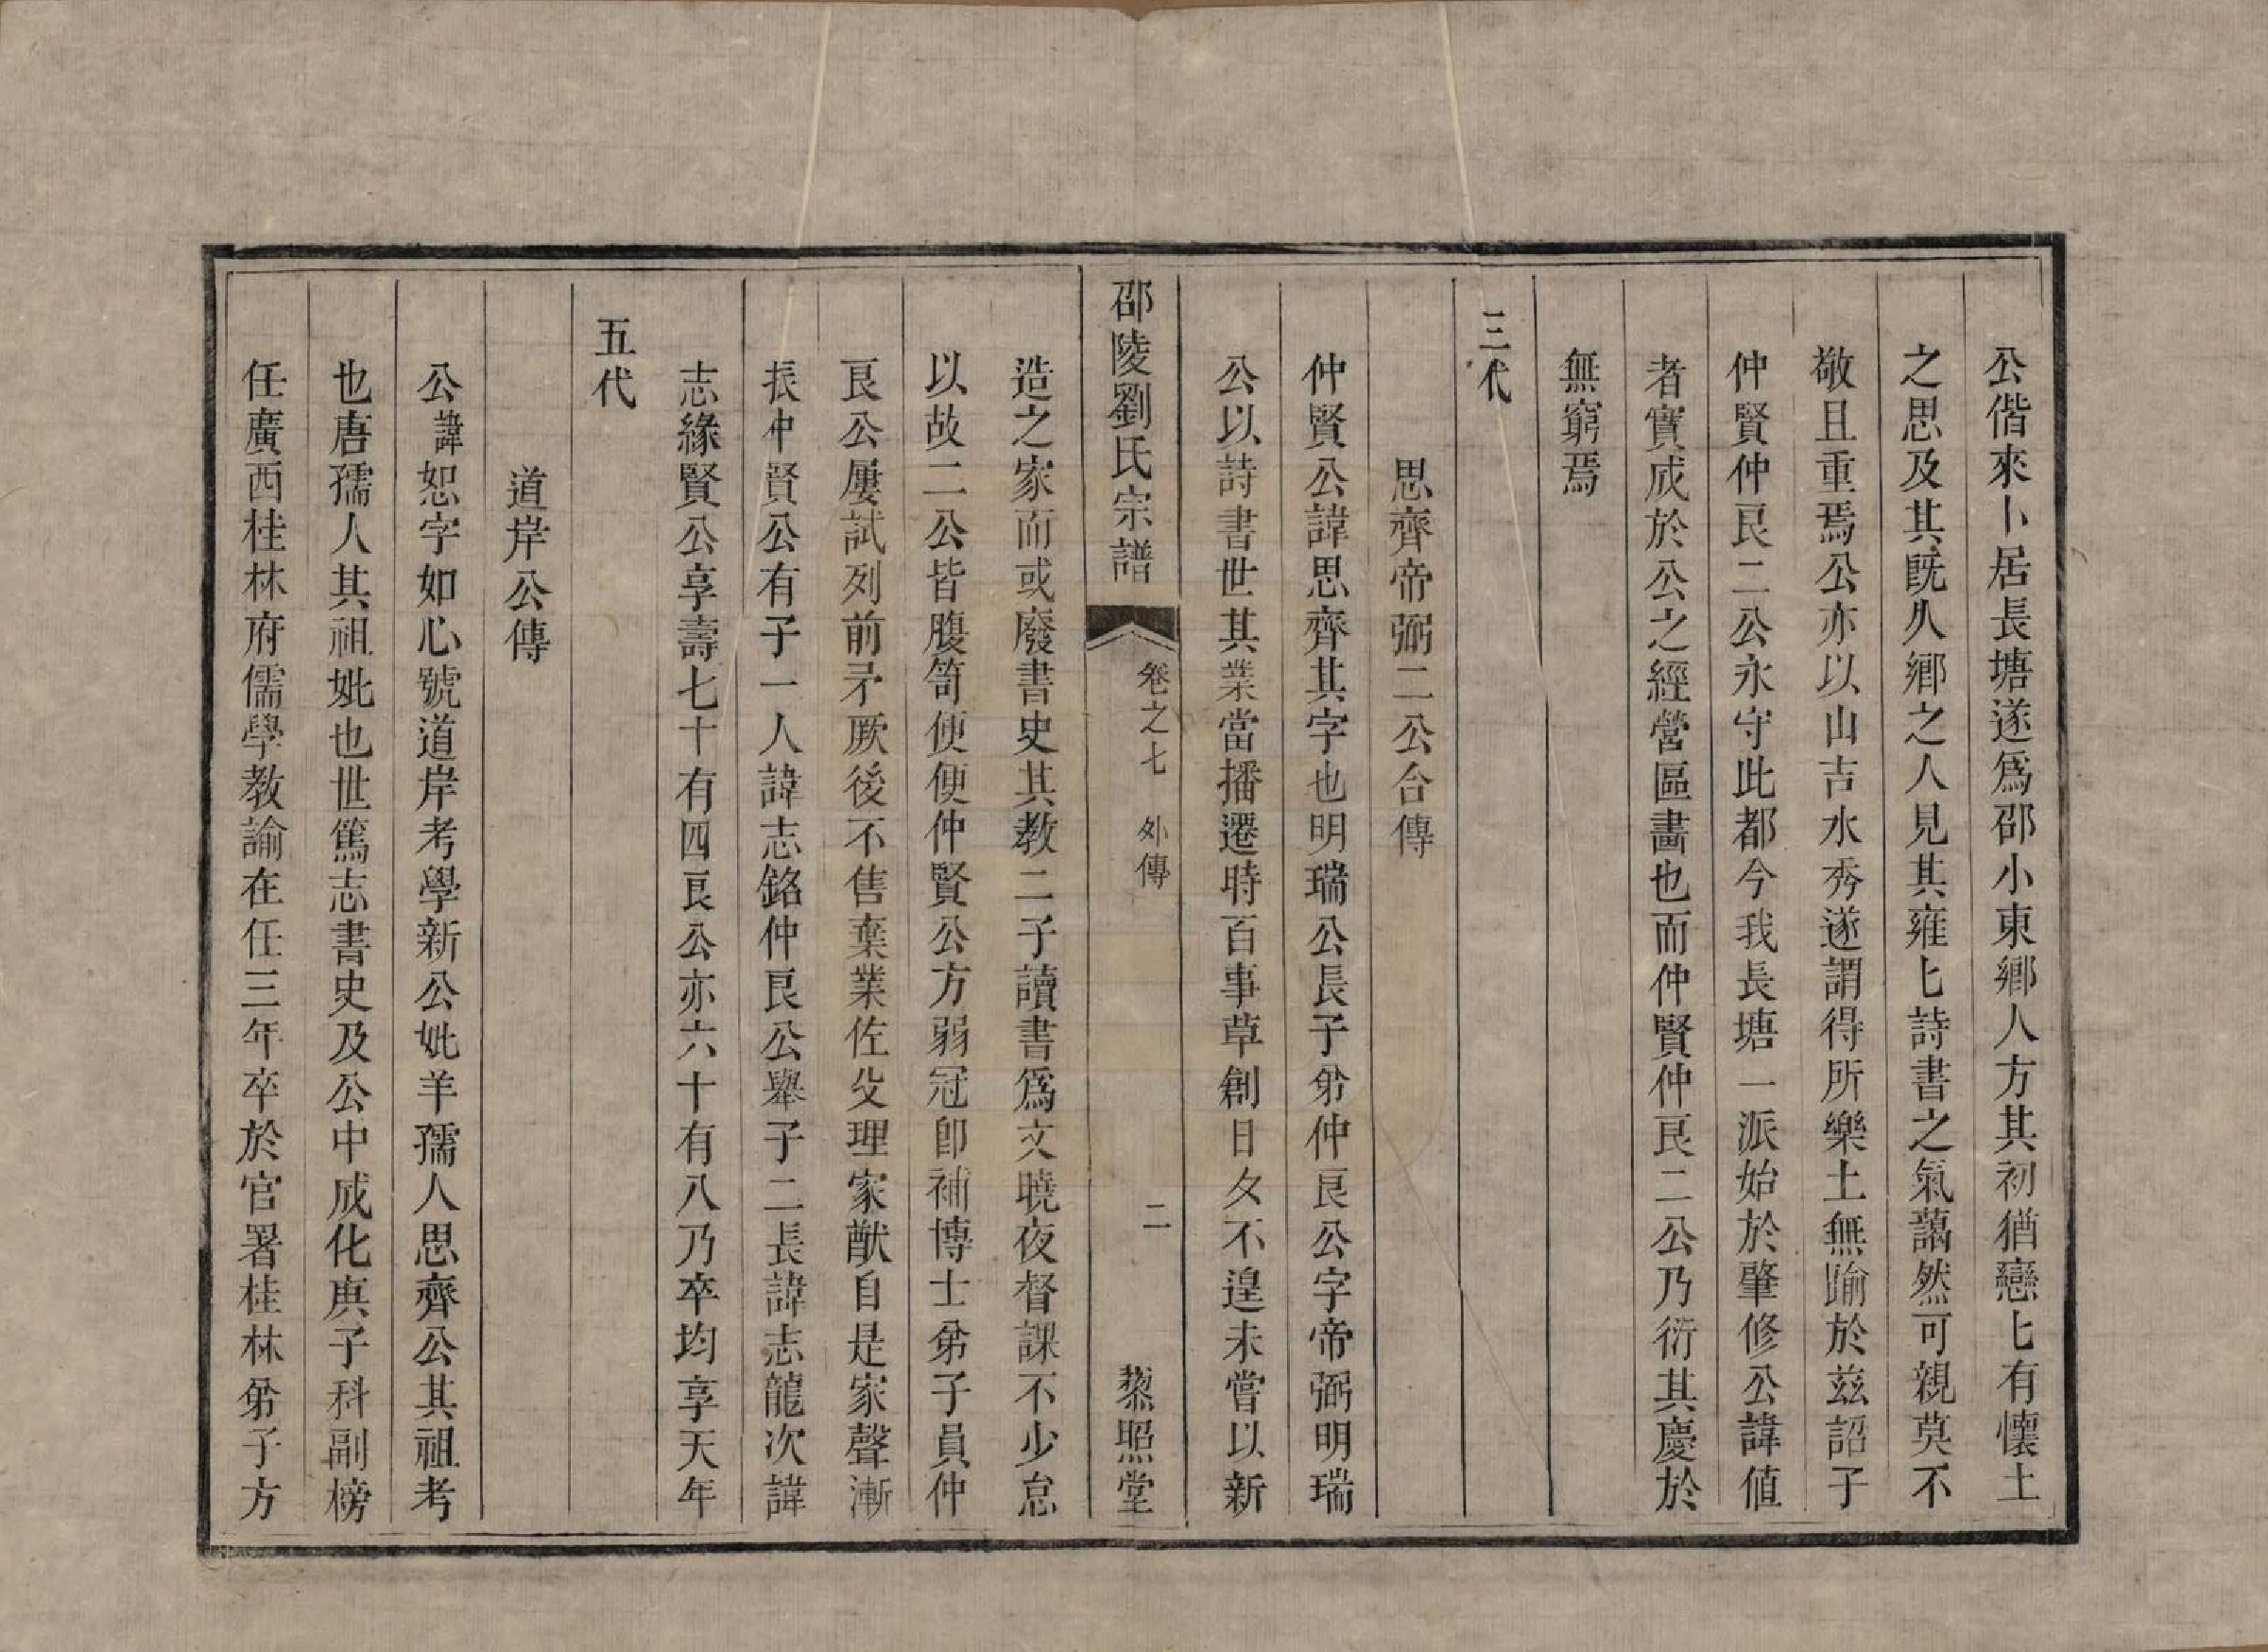 公偕來卜居長塘遂爲邵小東鄉人方其初猶戀匕有懷土
之思及其旣久鄉之人見其雍匕詩書之氣藹然可親莫不
敬且重焉公亦以山吉水秀遂謂得所樂土無踰於兹詔子
仲賢仲良二公永守此都今我長塘一派始於肇修公諱値
者實成於公之經營區畫也而仲賢仲良二公乃衍其慶於
無窮焉
三代
思齊帝弼二公合傳
仲賢公諱思齊其字也明瑞公長子弟仲良公字帝弼明瑞
公以詩書世其業當播遷時百事草創日夕不遑未嘗以新
邵陵劉氏宗譜 卷之七 外傳 二 藜照堂
造之家而或廢書史其教二子讀書爲文曉夜督課不少怠
以故二公皆腹笥便便仲賢公方弱冠卽補博士弟子員仲
良公屢試列前矛厥後不售棄業佐父理家猷自是家聲漸
振仲賢公有子一人諱志銘仲良公舉子二長諱志龍次諱
志緣賢公享壽七十有四良公亦六十有八乃卒均享天年
五代
道岸公傳
公諱恕字如心號道岸考學新公妣羊孺人思齊公其祖考
也唐孺人其祖妣也世篤志書史及公中成化庚子科副榜
任廣西桂林府儒學教諭在任三年卒於官署桂林弟子方